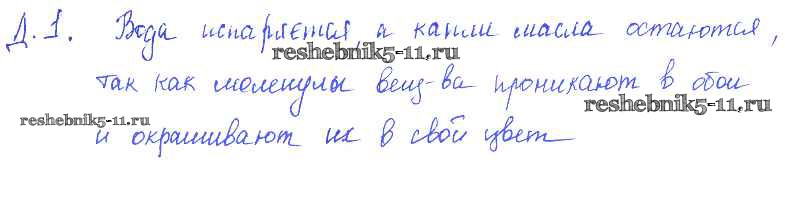 Д.1. Вода испаряется, а капли масла остаются,
reshebnik5-11.ru
так как молекулы вещ-ва проникают в обои
reshebnik5-11.ru
reshebnik5-11.ru
и окрашивают их в свой цвет